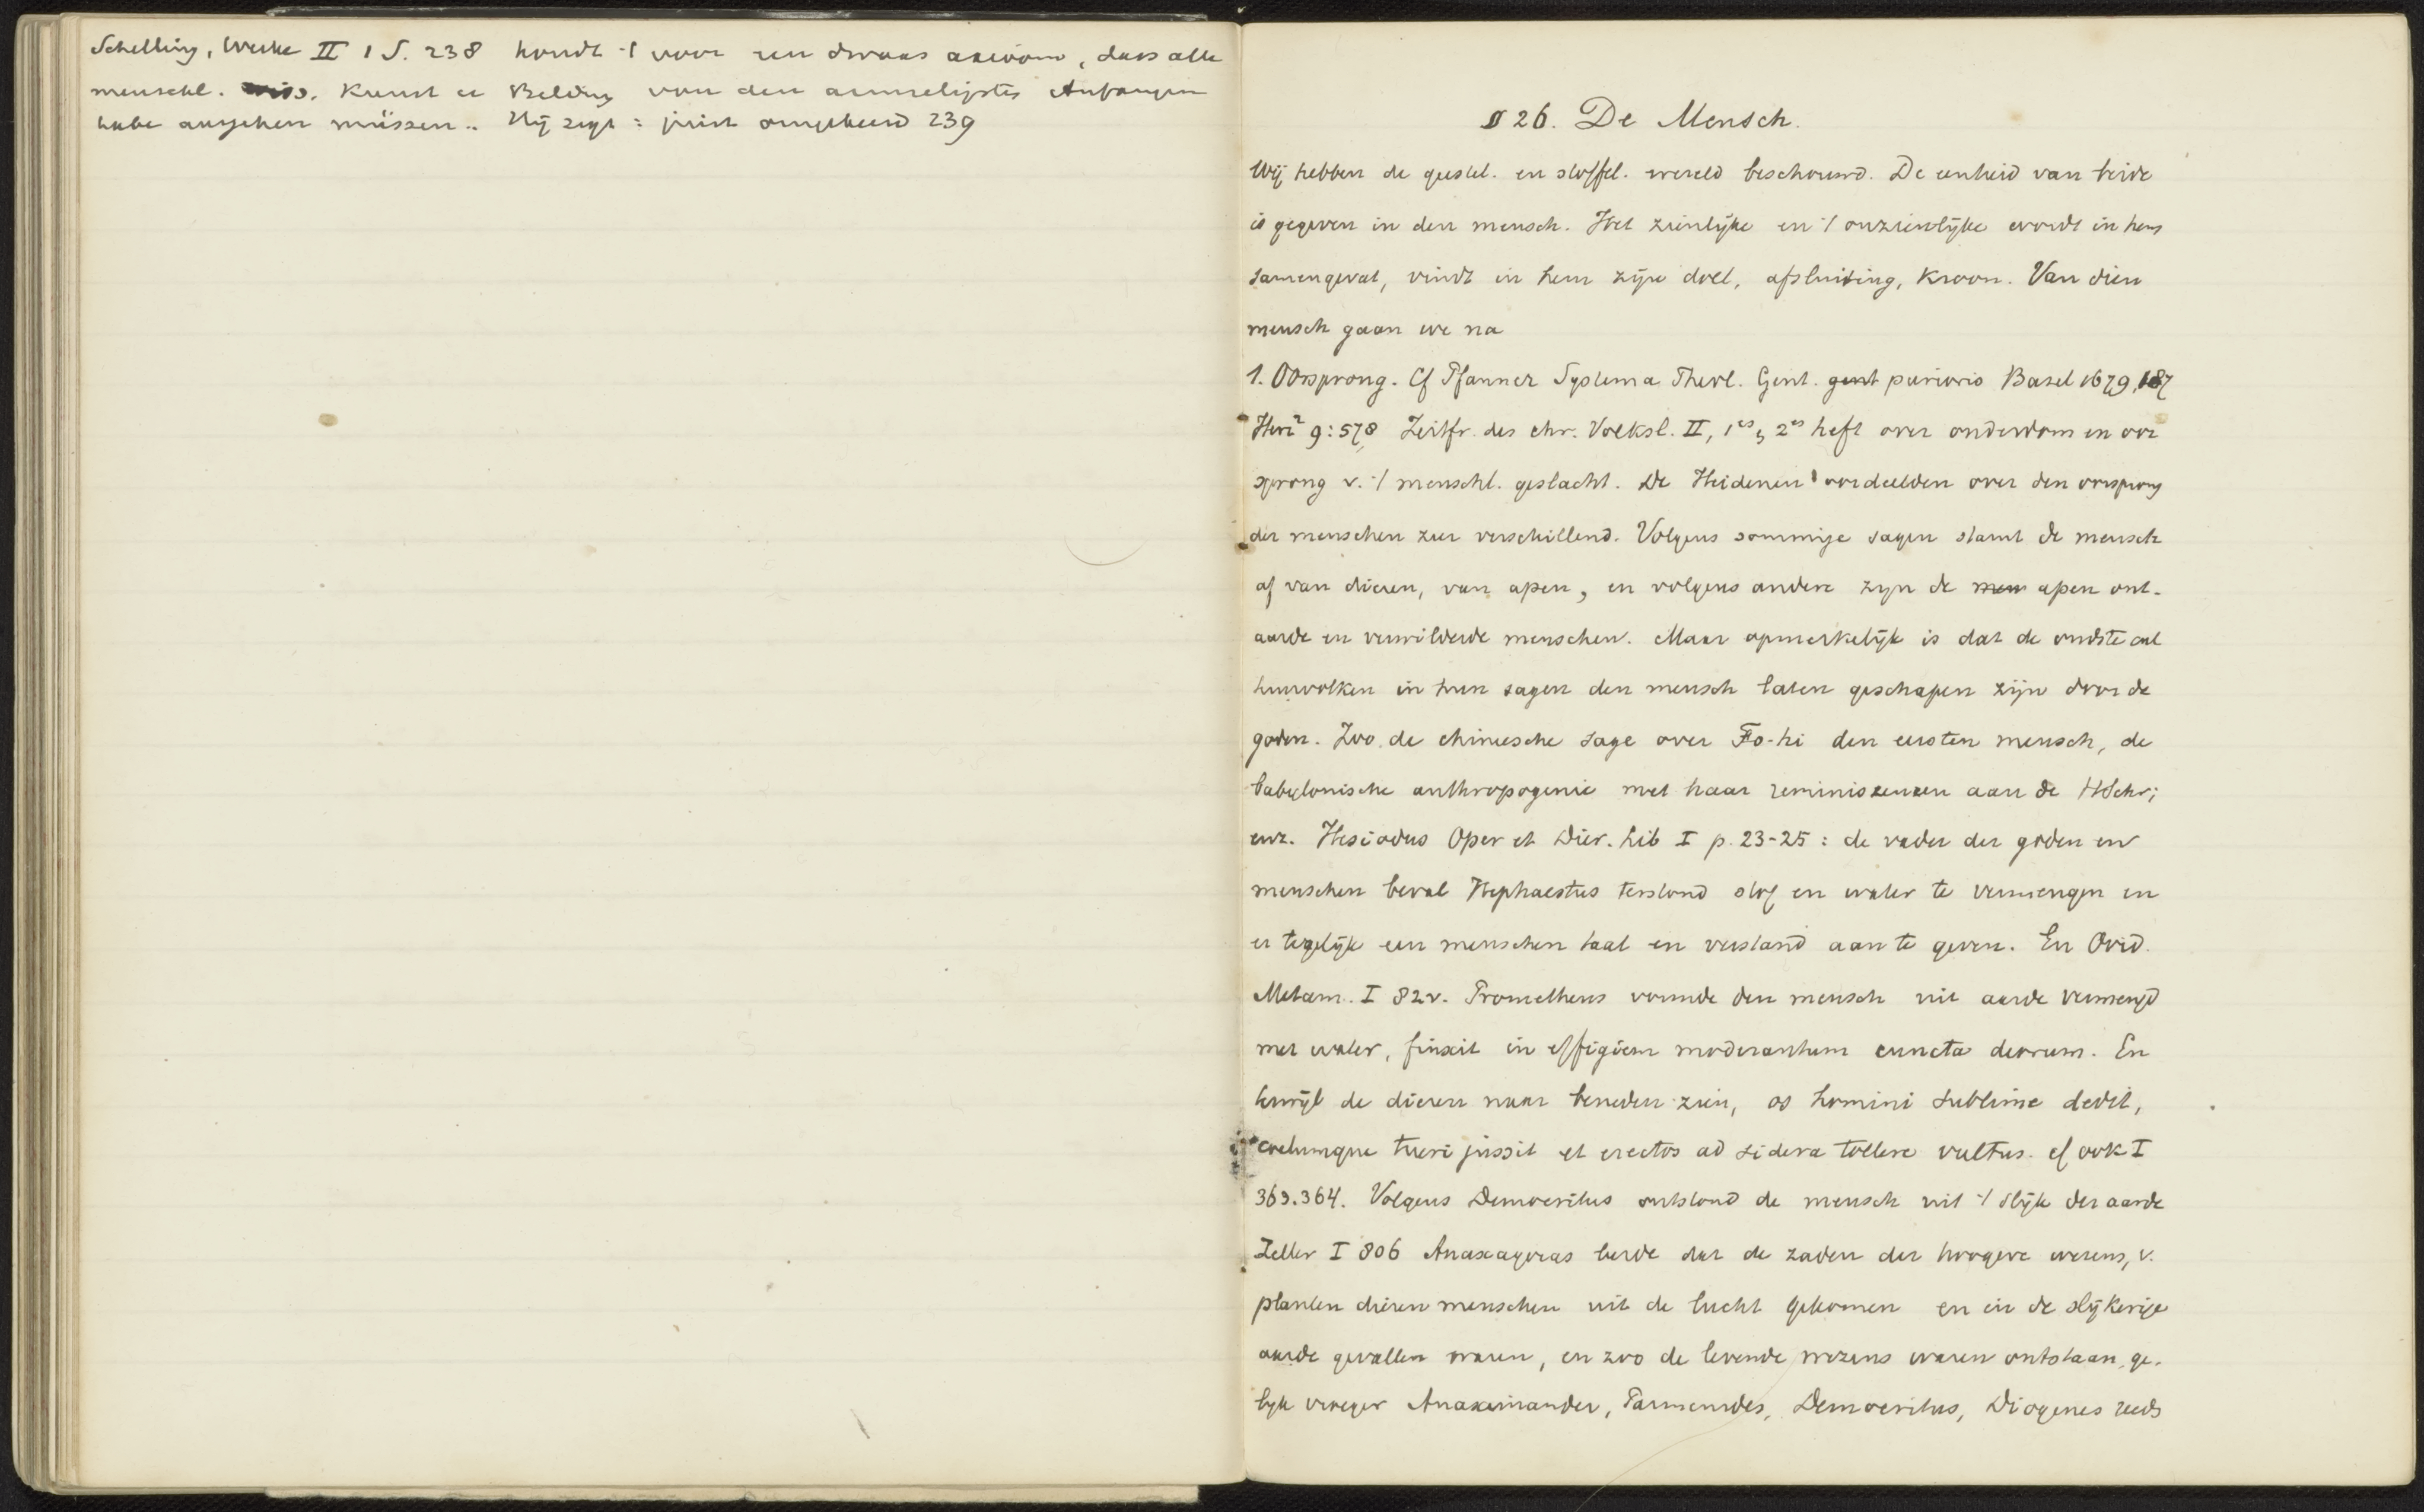 Schelling, Werke II 1 S. 238 houdt 't voor een dwaas axioom, dass alle
menschl. Wiss. Kunst u Bildung von den armseligsten Anfangen
habe ausgehen müssen.. Hij zegt : juist omgekeerd 239
§ 26. De Mensch.
Wij hebben de geestel. en stoffel. wereld beschouwd. De eenheid van beide
is gegeven in den mensch. Het zienlijke en 't onzienlijke wordt in hem
samengevat, vindt in hem zijn doel, afsluiting, kroon. Van dien
mensch gaan we na
1. Oorsprong. Cf Pfanner Systema Theol. Gent. gent purioris Basel 1679, 187
Herz² 9:578 Zeitfr. des chr. Volksl. II, 1es, 2es heft over ouderdom en oor
sprong v. 't menschl. geslacht. De Heidenen oordeelden over den oorsprong
der menschen zeer verschillend. Volgens sommige sagen stamt de mensch
af van dieren, van apen, en volgens andere zijn de men apen ont-
aarde en verwilderde menschen. Maar opmerkelijk is dat de oudste cul
tuurvolken in hun sagen den mensch laten geschapen zijn door de
goden. Zoo de chineesche sage over Fo-hi den eersten mensch, de
babylonische anthropogenie met haar reminiscenzen aan de HSchr;
enz. Hesiodus Oper et Dier. Lib I p. 23-25 : de vader der goden en
menschen beval Hephaestus terstond stof en water te vermengen en
er tegelijk een menschen taal en verstand aan te geven. En Ovid.
Metam. I 82v. Prometheus vormde den mensch uit aarde vermengd
met water, finxit in effigiem moderantum cuncta deorum. En
terwijl de dieren naar beneden zien, os homini sublime dedit,
coelumque tueri jussit et erectos ad sidera tollere vultus. cf ook I
363.364. Volgens Democritus ontstond de mensch uit 't slijk der aarde
Zeller I 806 Anaxagoras leerde dat de zaden der hoogere wezens, v.
planten dieren menschen uit de lucht gekomen en in de slijkerige
aarde gevallen waren, en zoo de levende wezens waren ontstaan, ge-
lijk vroeger Anaximander, Parmenides, Democritus, Diogenes reeds